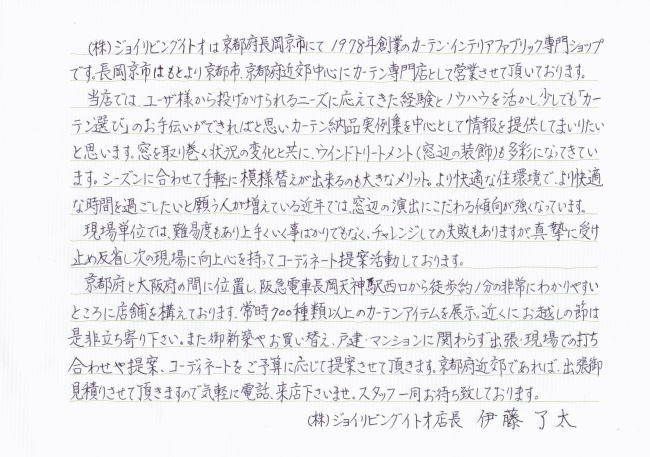 (株)ジョイリビングイトオは京都府長岡京市にて1978年創業のカーテン・インテリアファブリック専門ショップ
です。長岡京市はもとより京都市、京都府近郊中心にカーテン専門店として営業させて頂いております。
当店では、ユーザ様から投げかけられるニーズに応えてきた経験とノウハウを活かし、少しでも「カー
テン選び」のお手伝いができればと思いカーテン納品実例集を中心として情報を提供してまいりたい
と思います。窓を取り巻く状況の変化と共に、ウインドトリートメント(窓辺の装飾)も多彩になってきてい
ます。シーズンに合わせて手軽に模様替えが出来るのも大きなメリット。より快適な住環境で、より快適
な時間を過ごしたいと願う人が増えている近年では、窓辺の演出にこだわる傾向が強くなっています。
現場単位では、難易度もあり上手くいく事ばかりでもなく、チャレンジしての失敗もありますが、真摯に受け
止め反省し次の現場に向上心を持ってコーディネート提案活動しております。
京都府と大阪府の間に位置し、阪急電車長岡天神駅西口から徒歩約1分の非常にわかりやすい
ところに店舗を構えております。常時700種類以上のカーテンアイテムを展示。近くにお越しの節は
是非立ち寄り下さい。また御新築やお買い替え、戸建・マンションに関わらず出張・現場での打ち
合わせや提案、コーディネートをご予算に応じて提案させて頂きます。京都府近郊であれば、出張御
見積りさせて頂きますので気軽に電話、来店下さいませ。スタッフ一同お待ち致しております。
(株)ジョイリビングイトオ店長 伊藤了太